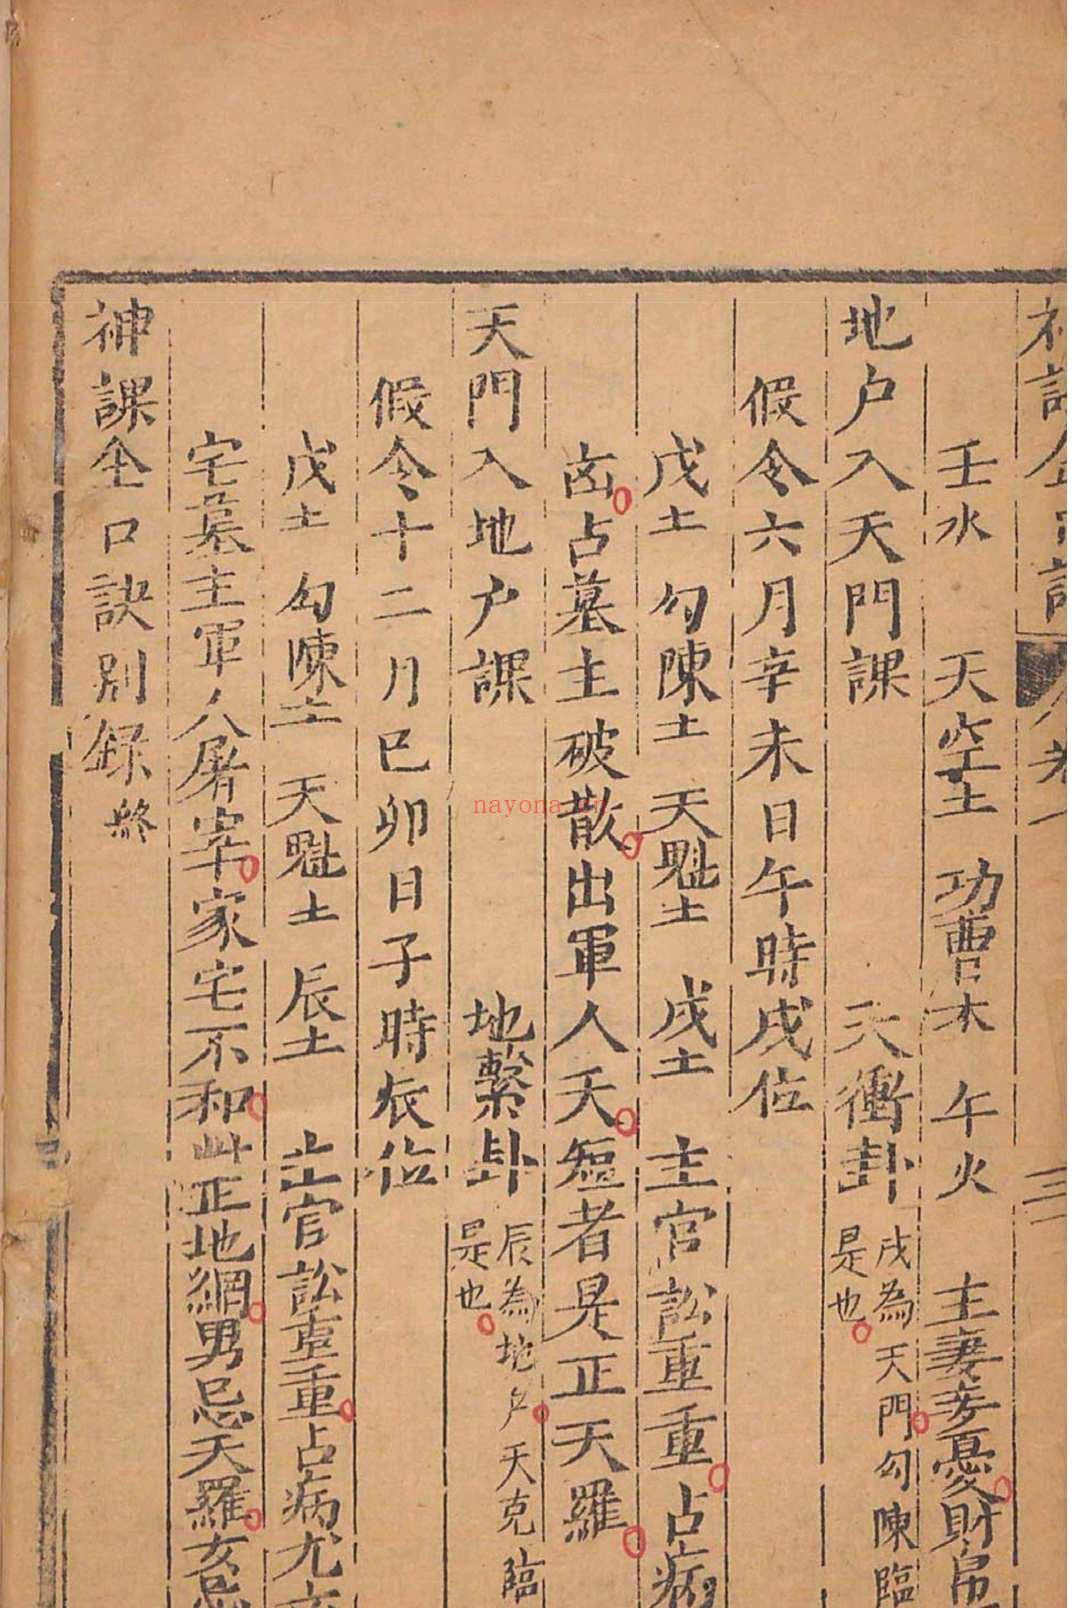 神課金口訣 卷一 三
壬水 天空土 功曹木 午火 主妻妾憂財帛
地户入天門課 天衝卦 戌為天門勾陳臨
是也
假令六月辛未日午時戌位
戊土 勾陳土 天魁土 戌土 主官訟重重占病
凶占墓主破散出軍人夭短者是正天羅
天門入地户課 地繫卦 辰為地户天克臨
是也
假令十二月己卯日子時辰位
戊土 勾陳土 天魁土 辰土 主官訟重重占病尤
宅墓主軍人屠宰家宅不和此正地網男忌天羅女忌
神課金口訣別録終
nayona.cn